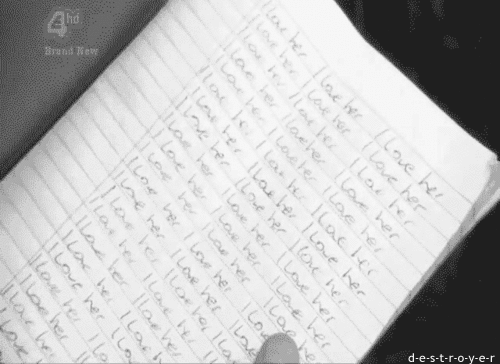 4 hd
Brand New
I love her I love her I love her
I love her I love her I love her
I love her I love her I love her
I love her I love her I love her
I love her I love her I love her
I love her I love her I love her
I love her I love her I love her
I love her I love her I love her
I love her I love her I love her
I love her I love her I love her
I love her I love her I love
I love her I love her
I love her I love her
I love her I love her
I love her I love
I love her
I love her
I love her
I love
d-e-s-t-r-o-y-e-r